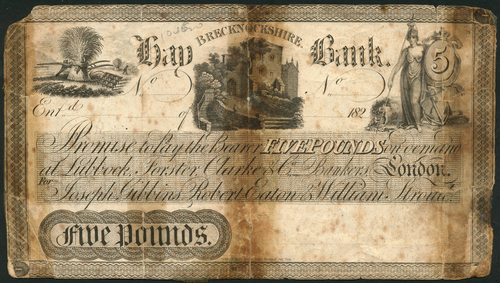 BRECKNOCKSHIRE.
Hay Bank.
5
No No
Entd of 182
I Promise to Pay the Bearer FIVE POUNDS on demand
at Lubbock, Forster Clarke & Co. Bankers London.
For Joseph Gibbins, Robert Eaton & William
Five Pounds.